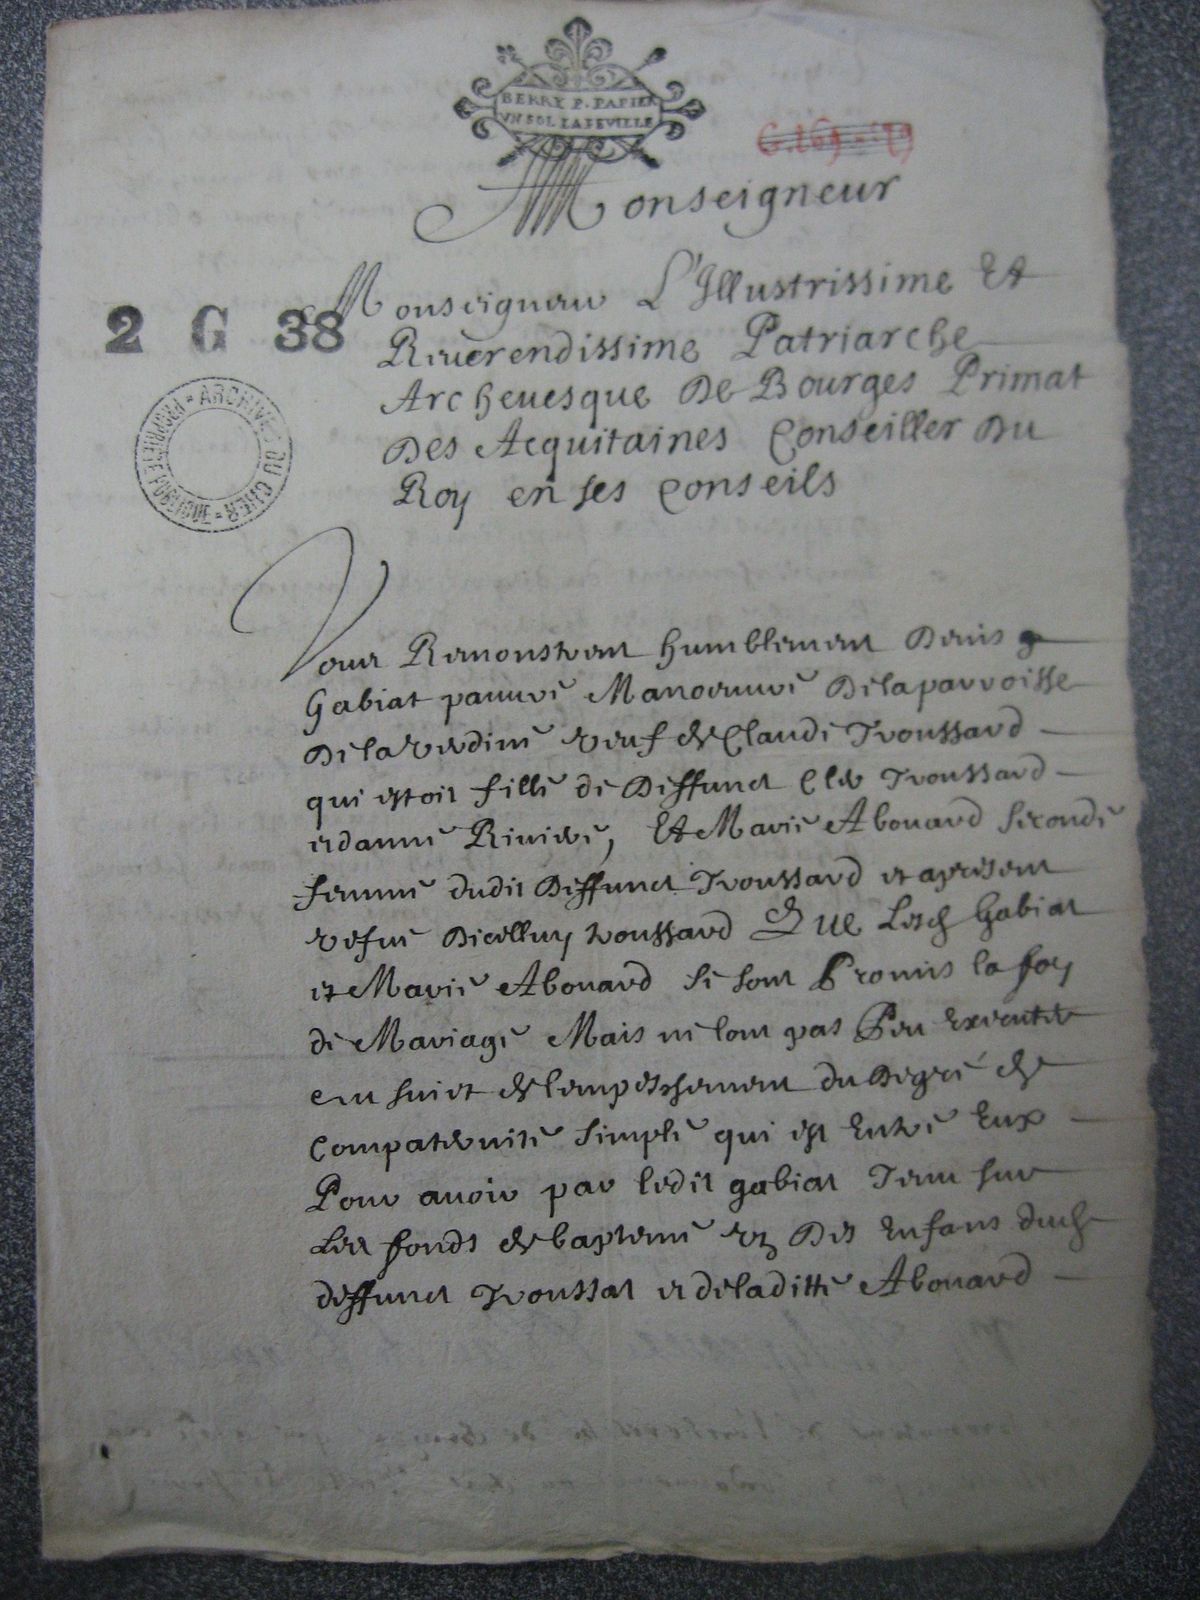 BERRY P. PAPIER
UN SOL LA FEUILLE
Monseigneur
2 G 38
ARCHIVES DU CHER PROPRIÉTÉ PUBLIQUE
Monseigneur L'Illustrissime Et
Reuerendissime Patriarche
Archeuesque De Bourges Primat
Des Acquitaines Conseiller Du
Roy en ses conseils
Vous Remonstrent humblement Denis
Gabiat pauure Manoeuure De la parroisse
De la Verdine veuf de Claude Troussard
qui estoit fille de Deffunct Troussard
et danne Riuiere, Et Marie Abouard seconde
femme dudit Deffunct Troussard et apresent
vefue Dicelluy troussard Que Lesd Gabiat
et Marie Abouard se sont Promis la foy
de Mariage Mais ne lont pas Peu executer
au suiet de lempeschement du Degré de
Compaternité simple qui est Entre Eux
Pour auoir par ledit gabiat Tenu sur
Les fonds de baptesme Des Enfans dud
deffunct Troussat et de laditte Abouard